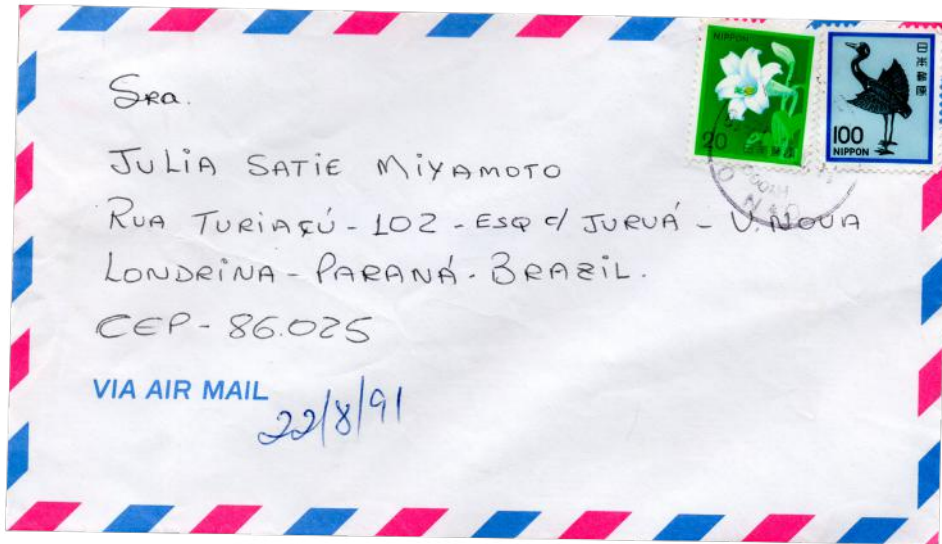 NIPPON
20
日本郵便
日本郵便
100
NIPPON
Sra.
JULIA SATIE MIYAMOTO
RUA TURIAÇÚ - 102 - ESQ c/ JURUÁ - V. NOVA
LONDRINA - PARANÁ - BRAZIL.
CEP - 86.025
VIA AIR MAIL
22/8/91